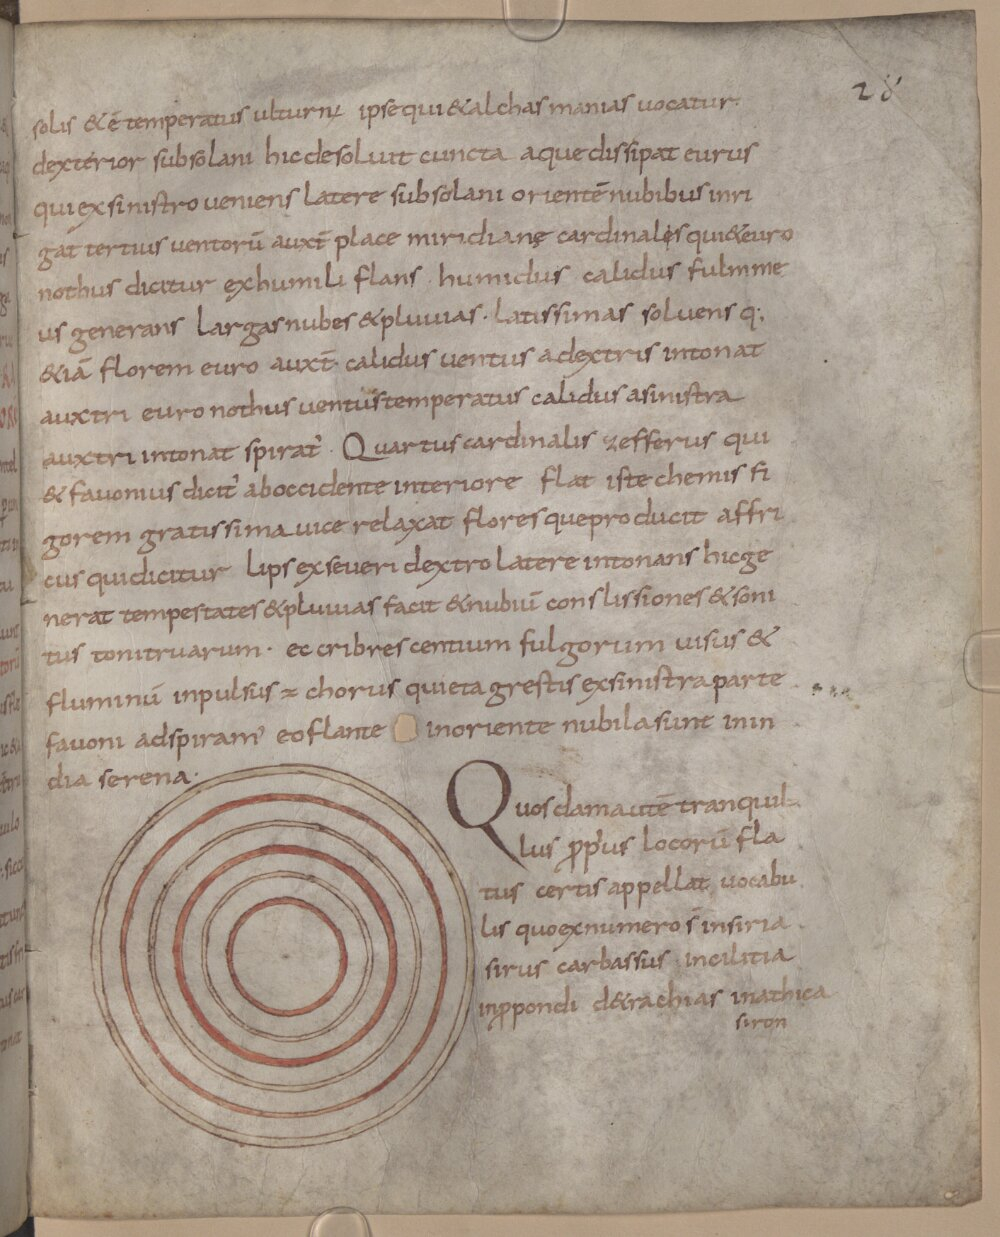 28
solis &ē temperatus ulturnꝰ ipse qui & alchasmanias uocatur.
dexterior subsolani hic desoluit cuncta aque dissipat eurus
qui ex sinistro ueniens latere subsolani orientē nubibus inri
gat tertius uentorū auxt̄ plage miridiane cardinales qui & euro
nothus dicitur ex humili flans humidus calidus fulmine
us generans largas nubes & pluuias. latissimas soluens q;
& iā florem euro auxt̄ calidus uentus a dextris intonat
auxtri euro nothus uentus temperatus calidus a sinistra
auxtri intonat spirat᷑. Quartus cardinalis zefferus qui
& fauonius dicit᷑ ab occidente interiore flat iste chemis fi
gorem gratissima uice relaxat flores que producit affri
cus qui dicitur lips ex severi dextro latere intonans hic ge
nerat tempestates & pluuias facit & nubiū conslissiones & soni
tus tonitruarum. ec cribrescentium fulgorum uisus &
fluminū inpulsus ⁊ chorus qui et agrestis ex sinistra parte
fauoni adspiram᷑ eo flante in oriente nubila sunt in in
dia serena.
Quos clamautē tranquil
lus ꝓp̄us locorū fla
tus certis appellat uocabu
lis quo ex numero s̄ in siria
sirus carbassus in cilitia
in ꝓpondi d&rachias in athica
siron